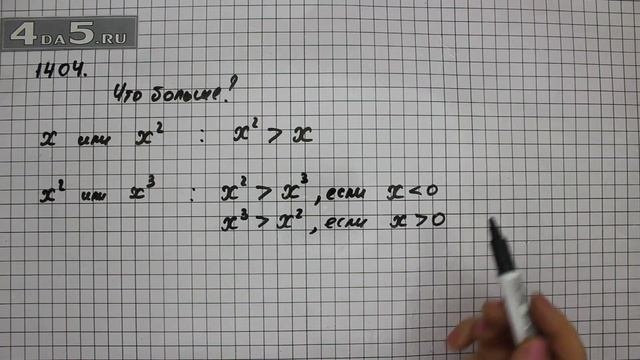 4DA5.RU
1404.
Что больше?
x или x² : x² > x
x² или x³ : x² > x³, если x < 0
x³ > x², если x > 0